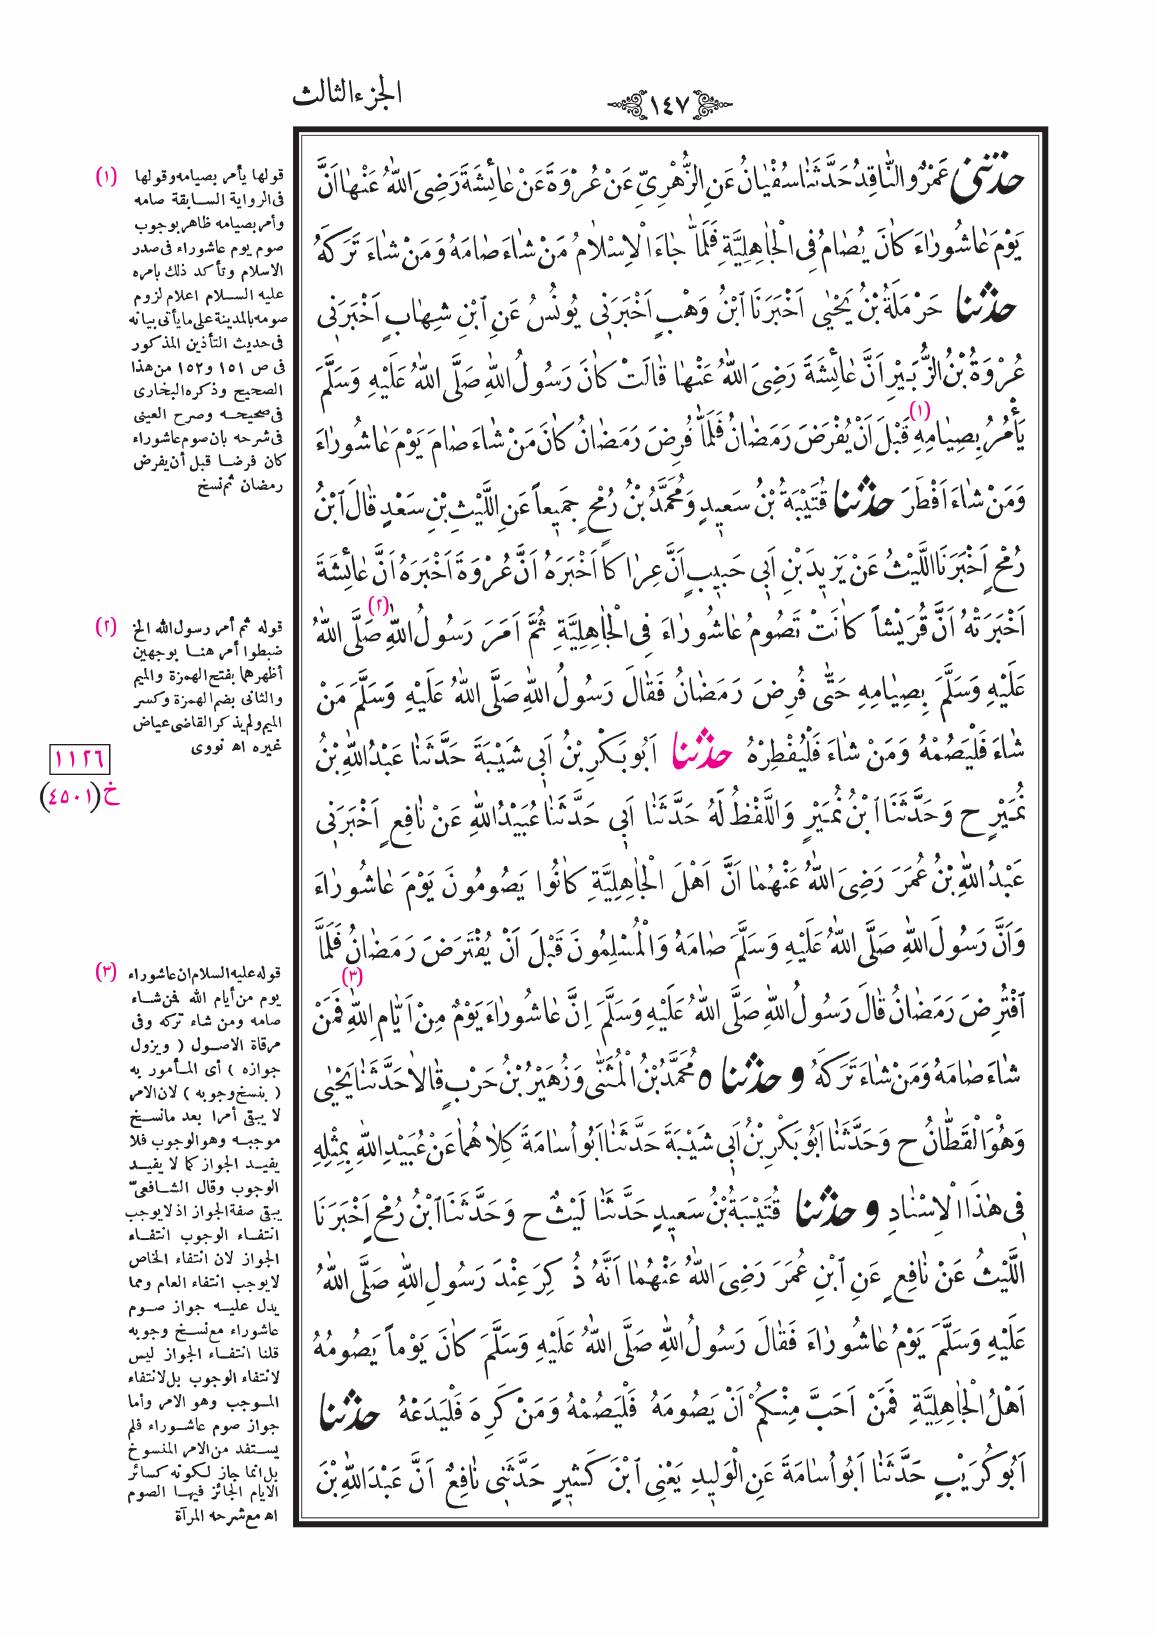 ١٤٧
الجزء الثالث
حَدَّثَنِى عَمْرٌو النَّاقِدُ حَدَّثَنَا سُفْيَانُ عَنِ الزُّهْرِىِّ عَنْ عُرْوَةَ عَنْ عَائِشَةَ رَضِىَ اللّٰهُ عَنْهَا اَنَّ
يَوْمَ عَاشُورَاءَ كَانَ يُصَامُ فِى الْجَاهِلِيَّةِ فَلَمَّا جَاءَ الْاِسْلَامُ مَنْ شَاءَ صَامَهُ وَمَنْ شَاءَ تَرَكَهُ
حَدَّثَنَا حَرْمَلَةُ بْنُ يَحْيٰى اَخْبَرَنَا ابْنُ وَهْبٍ اَخْبَرَنِى يُونُسُ عَنِ ابْنِ شِهَابٍ اَخْبَرَنِى
عُرْوَةُ بْنُ الزُّبَيْرِ اَنَّ عَائِشَةَ رَضِىَ اللّٰهُ عَنْهَا قَالَتْ كَانَ رَسُولُ اللّٰهِ صَلَّى اللّٰهُ عَلَيْهِ وَسَلَّمَ
يَأْمُرُ بِصِيَامِهِ (١) قَبْلَ اَنْ يُفْرَضَ رَمَضَانُ فَلَمَّا فُرِضَ رَمَضَانُ كَانَ مَنْ شَاءَ صَامَ يَوْمَ عَاشُورَاءَ
وَمَنْ شَاءَ اَفْطَرَ حَدَّثَنَا قُتَيْبَةُ بْنُ سَعِيدٍ وَمُحَمَّدُ بْنُ رُمْحٍ جَمِيعاً عَنِ اللَّيْثِ بْنِ سَعْدٍ قَالَ ابْنُ
رُمْحٍ اَخْبَرَنَا اللَّيْثُ عَنْ يَزِيدَ بْنِ اَبِى حَبِيبٍ اَنَّ عِرَاكاً اَخْبَرَهُ اَنَّ عُرْوَةَ اَخْبَرَهُ اَنَّ عَائِشَةَ
اَخْبَرَتْهُ اَنَّ قُرَيْشاً كَانَتْ تَصُومُ عَاشُورَاءَ فِى الْجَاهِلِيَّةِ ثُمَّ اَمَرَ رَسُولُ اللّٰهِ (٢) صَلَّى اللّٰهُ
عَلَيْهِ وَسَلَّمَ بِصِيَامِهِ حَتّٰى فُرِضَ رَمَضَانُ فَقَالَ رَسُولُ اللّٰهِ صَلَّى اللّٰهُ عَلَيْهِ وَسَلَّمَ مَنْ
شَاءَ فَلْيَصُمْهُ وَمَنْ شَاءَ فَلْيُفْطِرْهُ حَدَّثَنَا اَبُو بَكْرِ بْنُ اَبِى شَيْبَةَ حَدَّثَنَا عَبْدُ اللّٰهِ بْنُ
نُمَيْرٍ ح وَحَدَّثَنَا ابْنُ نُمَيْرٍ وَاللَّفْظُ لَهُ حَدَّثَنَا اَبِى حَدَّثَنَا عُبَيْدُ اللّٰهِ عَنْ نَافِعٍ اَخْبَرَنِى
عَبْدُ اللّٰهِ بْنُ عُمَرَ رَضِىَ اللّٰهُ عَنْهُمَا اَنَّ اَهْلَ الْجَاهِلِيَّةِ كَانُوا يَصُومُونَ يَوْمَ عَاشُورَاءَ
وَاَنَّ رَسُولَ اللّٰهِ صَلَّى اللّٰهُ عَلَيْهِ وَسَلَّمَ صَامَهُ وَالْمُسْلِمُونَ قَبْلَ اَنْ يُفْتَرَضَ رَمَضَانُ فَلَمَّا
افْتُرِضَ رَمَضَانُ قَالَ رَسُولُ اللّٰهِ صَلَّى اللّٰهُ عَلَيْهِ وَسَلَّمَ اِنَّ عَاشُورَاءَ يَوْمٌ مِنْ اَيَّامِ اللّٰهِ (٣) فَمَنْ
شَاءَ صَامَهُ وَمَنْ شَاءَ تَرَكَهُ وحَدَّثَنَا ه مُحَمَّدُ بْنُ الْمُثَنّٰى وَزُهَيْرُ بْنُ حَرْبٍ قَالَا حَدَّثَنَا يَحْيٰى
وَهُوَ الْقَطَّانُ ح وَحَدَّثَنَا اَبُو بَكْرِ بْنُ اَبِى شَيْبَةَ حَدَّثَنَا اَبُو اُسَامَةَ كِلَاهُمَا عَنْ عُبَيْدِ اللّٰهِ بِمِثْلِهِ
فِى هٰذَا الْاِسْنَادِ وحَدَّثَنَا قُتَيْبَةُ بْنُ سَعِيدٍ حَدَّثَنَا لَيْثٌ ح وَحَدَّثَنَا ابْنُ رُمْحٍ اَخْبَرَنَا
اللَّيْثُ عَنْ نَافِعٍ عَنِ ابْنِ عُمَرَ رَضِىَ اللّٰهُ عَنْهُمَا اَنَّهُ ذُكِرَ عِنْدَ رَسُولِ اللّٰهِ صَلَّى اللّٰهُ
عَلَيْهِ وَسَلَّمَ يَوْمُ عَاشُورَاءَ فَقَالَ رَسُولُ اللّٰهِ صَلَّى اللّٰهُ عَلَيْهِ وَسَلَّمَ كَانَ يَوْماً يَصُومُهُ
اَهْلُ الْجَاهِلِيَّةِ فَمَنْ اَحَبَّ مِنْكُمْ اَنْ يَصُومَهُ فَلْيَصُمْهُ وَمَنْ كَرِهَ فَلْيَدَعْهُ حَدَّثَنَا
اَبُو كُرَيْبٍ حَدَّثَنَا اَبُو اُسَامَةَ عَنِ الْوَلِيدِ يَعْنِى ابْنَ كَثِيرٍ حَدَّثَنِى نَافِعٌ اَنَّ عَبْدَ اللّٰهِ بْنَ
(١) قولها يأمر بصيامه وقولها
فى الرواية السابقة صامه
وأمر بصيامه ظاهر بوجوب
صوم يوم عاشوراء فى صدر
الاسلام وتأكد ذلك بامره
عليه السلام اعلام لزوم
صومه بالمدينة على ما يأتى بيانه
فى حديث التأذين المذكور
فى ص ١٥١ و ١٥٢ من هذا
الصحيح وذكره البخارى
فى صحيحه وصرح العينى
فى شرحه بان صوم عاشوراء
كان فرضا قبل أن يفرض
رمضان ثم نسخ
(٢) قوله ثم أمر رسول الله الخ
ضبطوا أمر هنا بوجهين
أظهرهما بفتح الهمزة والميم
والثانى بضم الهمزة وكسر
الميم ولم يذكر القاضى عياض
غيره اه نووى
١١٢٦
خ (٤٥٠١)
(٣) قوله عليه السلام ان عاشوراء
يوم من أيام الله فمن شاء
صامه ومن شاء تركه وفى
مرقاة الاصول ( ويزول
جوازه ) أى المأمور به
( بنسخ وجوبه ) لان الامر
لا يبقى أمرا بعد ما نسخ
موجبه وهو الوجوب فلا
يفيد الجواز كما لا يفيد
الوجوب وقال الشافعىّ
يبقى صفة الجواز اذ لا يوجب
انتفاء الوجوب انتفاء
الجواز لان انتفاء الخاص
لا يوجب انتفاء العام ومما
يدل عليه جواز صوم
عاشوراء مع نسخ وجوبه
قلنا انتفاء الجواز ليس
لانتفاء الوجوب بل لانتفاء
الموجب وهو الامر وأما
جواز صوم عاشوراء فلم
يستفد من الامر المنسوخ
بل انما جاز لكونه كسائر
الايام الجائز فيها الصوم
اه مع شرحه المرآة